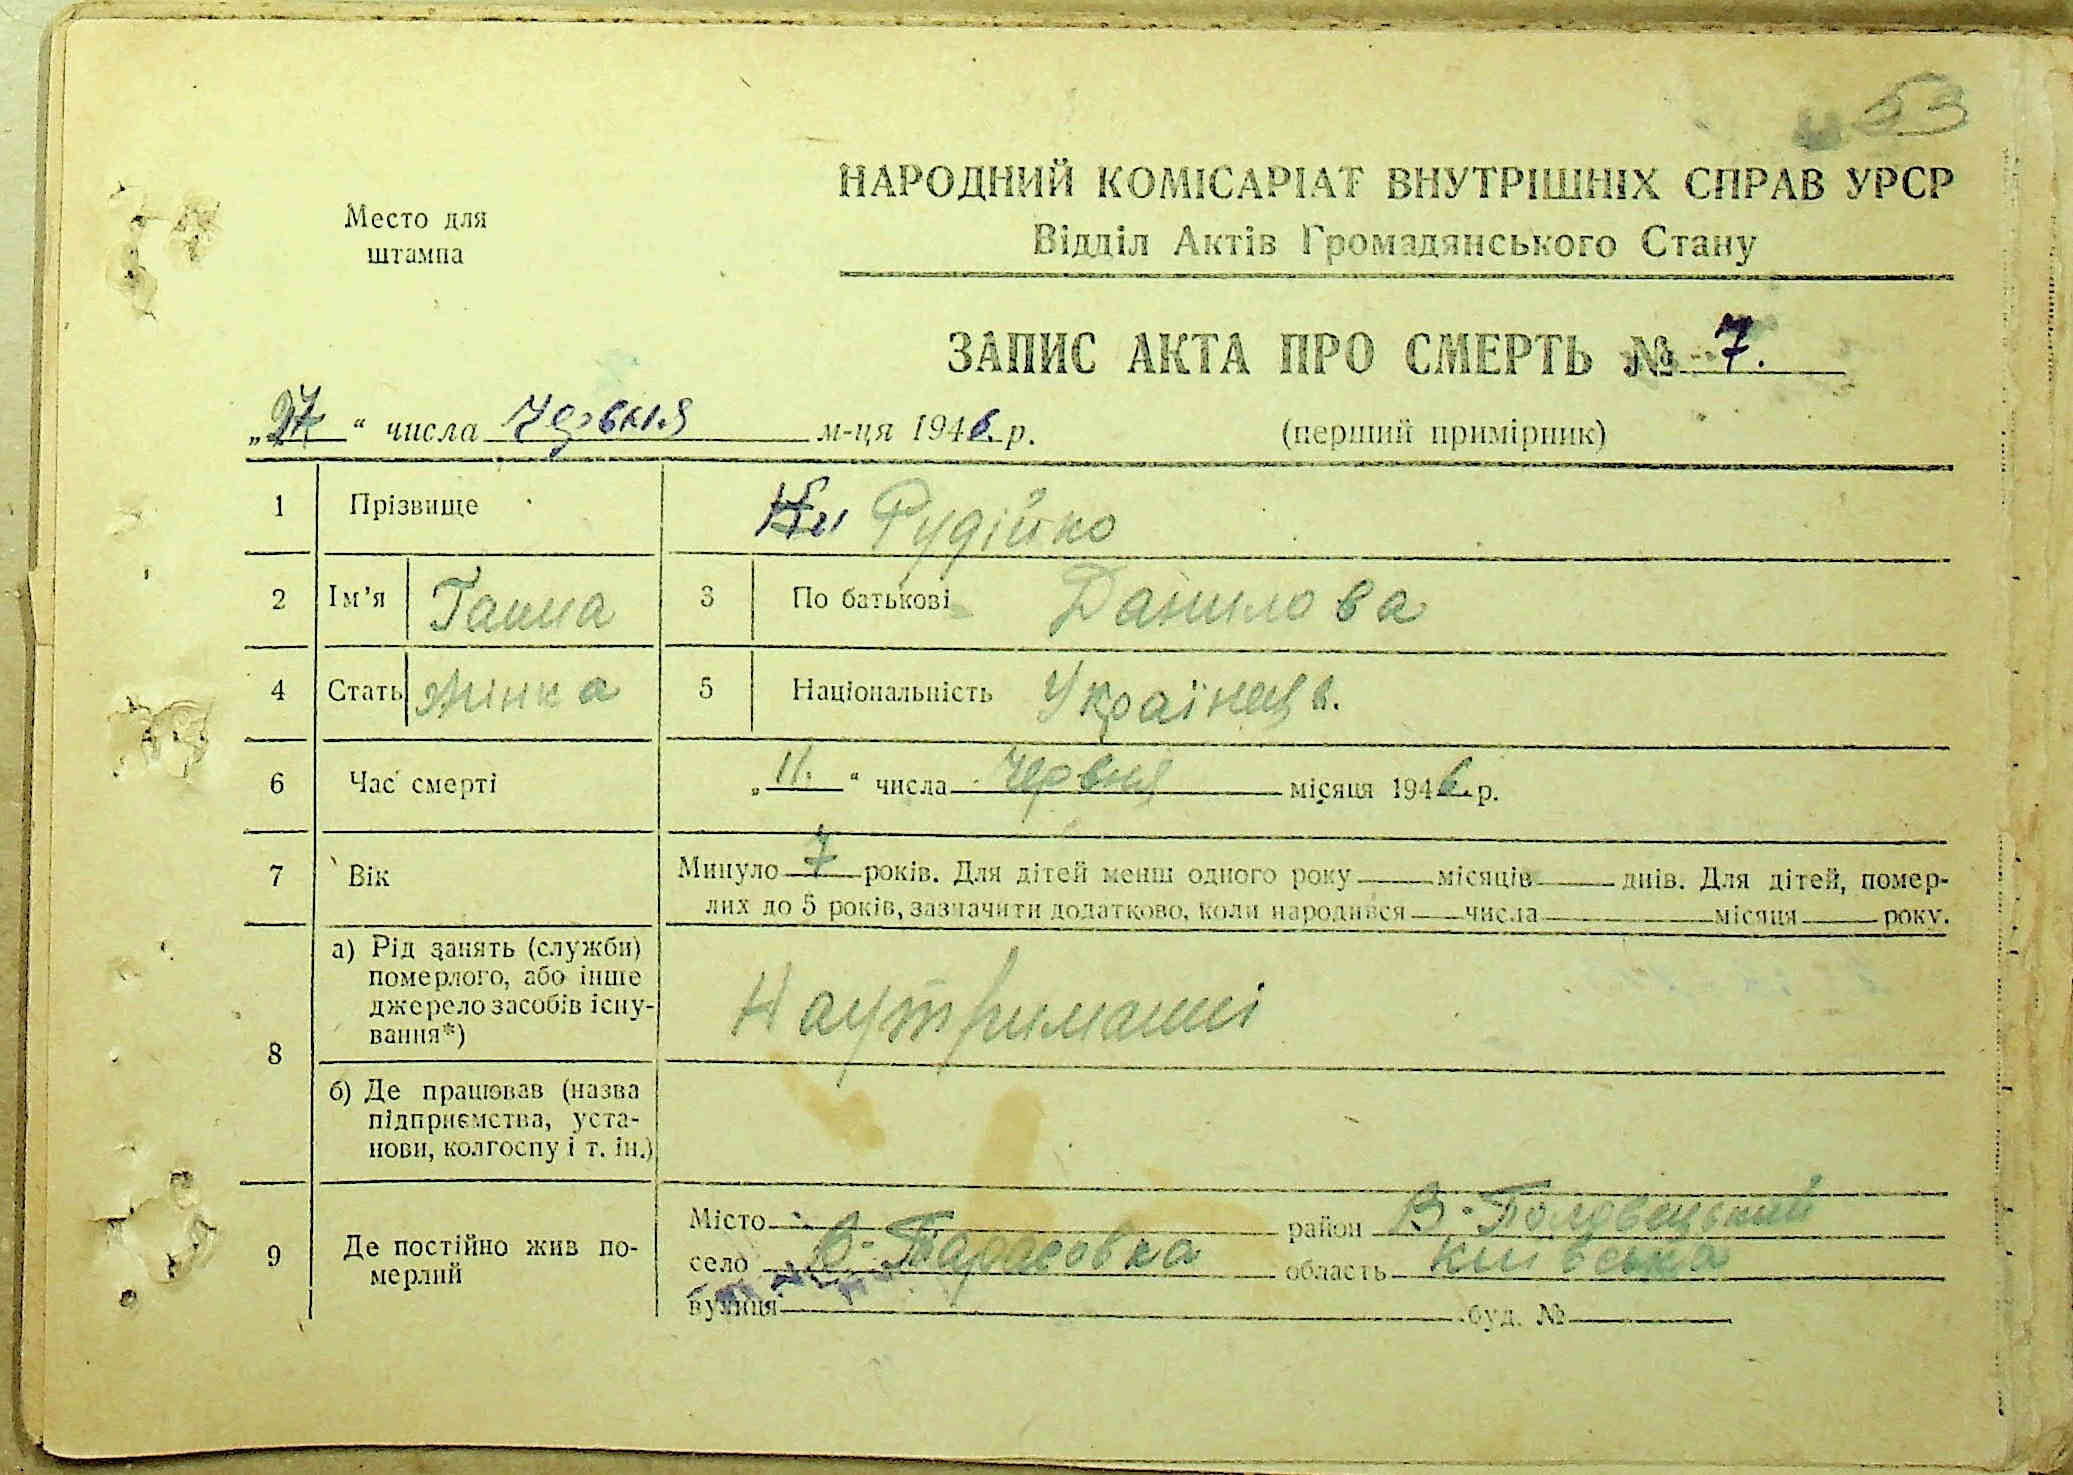 53
НАРОДНИЙ КОМІСАРІАТ ВНУТРІШНІХ СПРАВ УРСР
Відділ Актів Громадянського Стану
Место для
штампа
ЗАПИС АКТА ПРО СМЕРТЬ № 7.
„27“ числа Червня м-ця 1946. р.
(перший примірник)
1 Прізвище Рудійко
2 Ім’я Ганна 3 По батькові Данилова
4 Стать жінка 5 Національність
6 Час смерті „11.“ числа Червня місяця 1946. р.
7 Вік Минуло 7 років. Для дітей менш одного року місяців днів. Для дітей, помер-
лих до 5 років, зазначити додатково, коли народився числа місяця року.
8 а) Рід занять (служби)
померлого, або інше
джерело засобів існу-
вання*)
Наутриманні
б) Де працював (назва
підприємства, уста-
нови, колгоспу і т. ін.)
9 Де постійно жив по-
мерлий
Місто район В-Половецький
село Тарасовка область Київська
вулиця буд. №